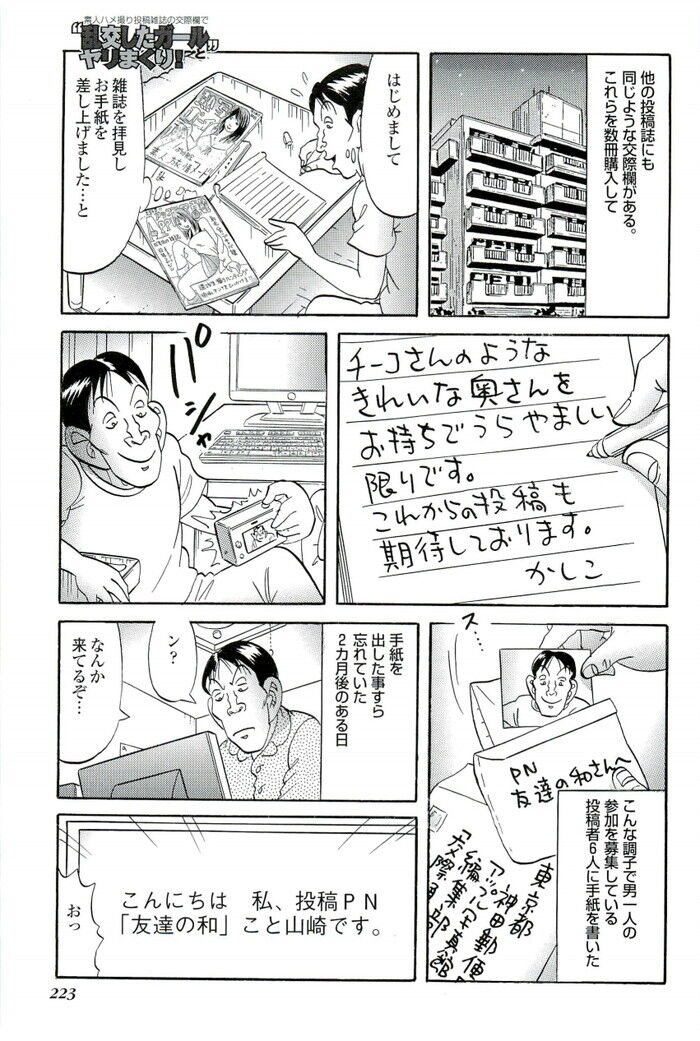 素人ハメ撮り投稿雑誌の交際欄で
“乱交したガールと
ヤリまくり!”
他の投稿誌にも
同じような交際欄がある。
これらを数冊購入して
はじめまして
雑誌を拝見し
お手紙を
差し上げました…と
チーコさんのような
きれいな奥さんを
お持ちでうらやましい
限りです。
これからの投稿も
期待しております。
かしこ
パシャ
ス…
PN
友達の和さんへ
東京都
神田郵便
こんな調子で男一人の
参加を募集している
投稿者6人に手紙を書いた
手紙を
出した事すら
忘れていた
2カ月後のある日
ン?
なんか
来てるぞ…
こんにちは 私、投稿PN
「友達の和」こと山崎です。
おっ
223